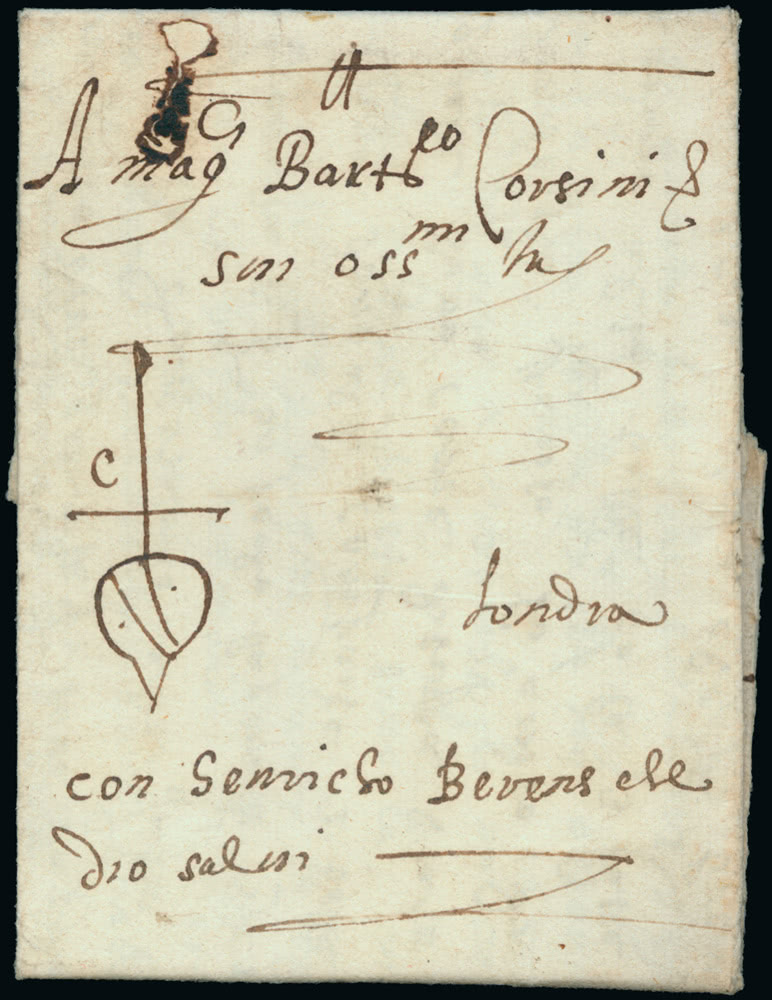 A mag^ci Barto^eo Corsini &
sin oss^mi in
C
Londra
con Henricho Berens che
dio salvi